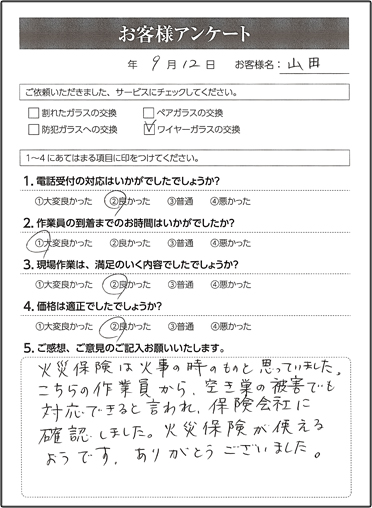 お客様アンケート
年 9月12日 お客様名：山田
ご依頼いただきました、サービスにチェックしてください。
□割れたガラスの交換 □ペアガラスの交換
□防犯ガラスへの交換 ☑ワイヤーガラスの交換
1～4にあてはまる項目に印をつけてください。
1. 電話受付の対応はいかがでしたでしょうか？
①大変良かった ②良かった ③普通 ④悪かった
2. 作業員の到着までのお時間はいかがでしたか？
①大変良かった ②良かった ③普通 ④悪かった
3. 現場作業は、満足のいく内容でしたでしょうか？
①大変良かった ②良かった ③普通 ④悪かった
4. 価格は適正でしたでしょうか？
①大変良かった ②良かった ③普通 ④悪かった
5. ご感想、ご意見のご記入お願いいたします。
火災保険は火事の時のものと思っていました。
こちらの作業員から、空き巣の被害でも
対応できると言われ、保険会社に
確認しました。火災保険が使える
ようです。ありがとうございました。